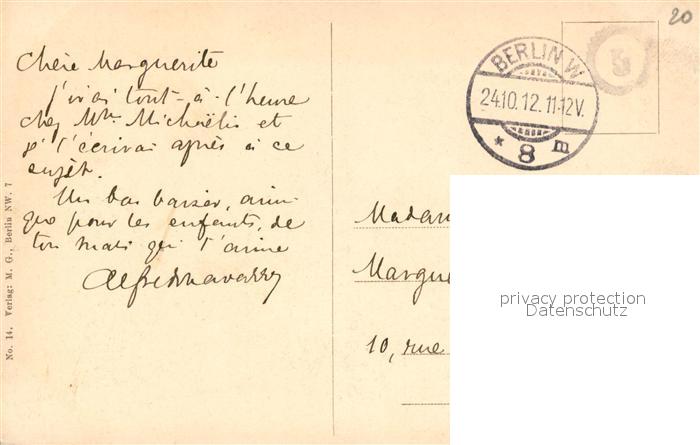 20
Chère Marguerite
j'irai tout-à-l'heure
chez Mme Michaëlis et
je t'écrirai après à ce
sujet.
Un bon baiser, ainsi
que pour les enfants, de
ton mari qui t'aime
BERLIN W
24.10.12.11-12V.
* 8 m
Madam
Margue
10, rue
privacy protection
Datenschutz
No. 14. Verlag: M. G., Berlin NW. 7